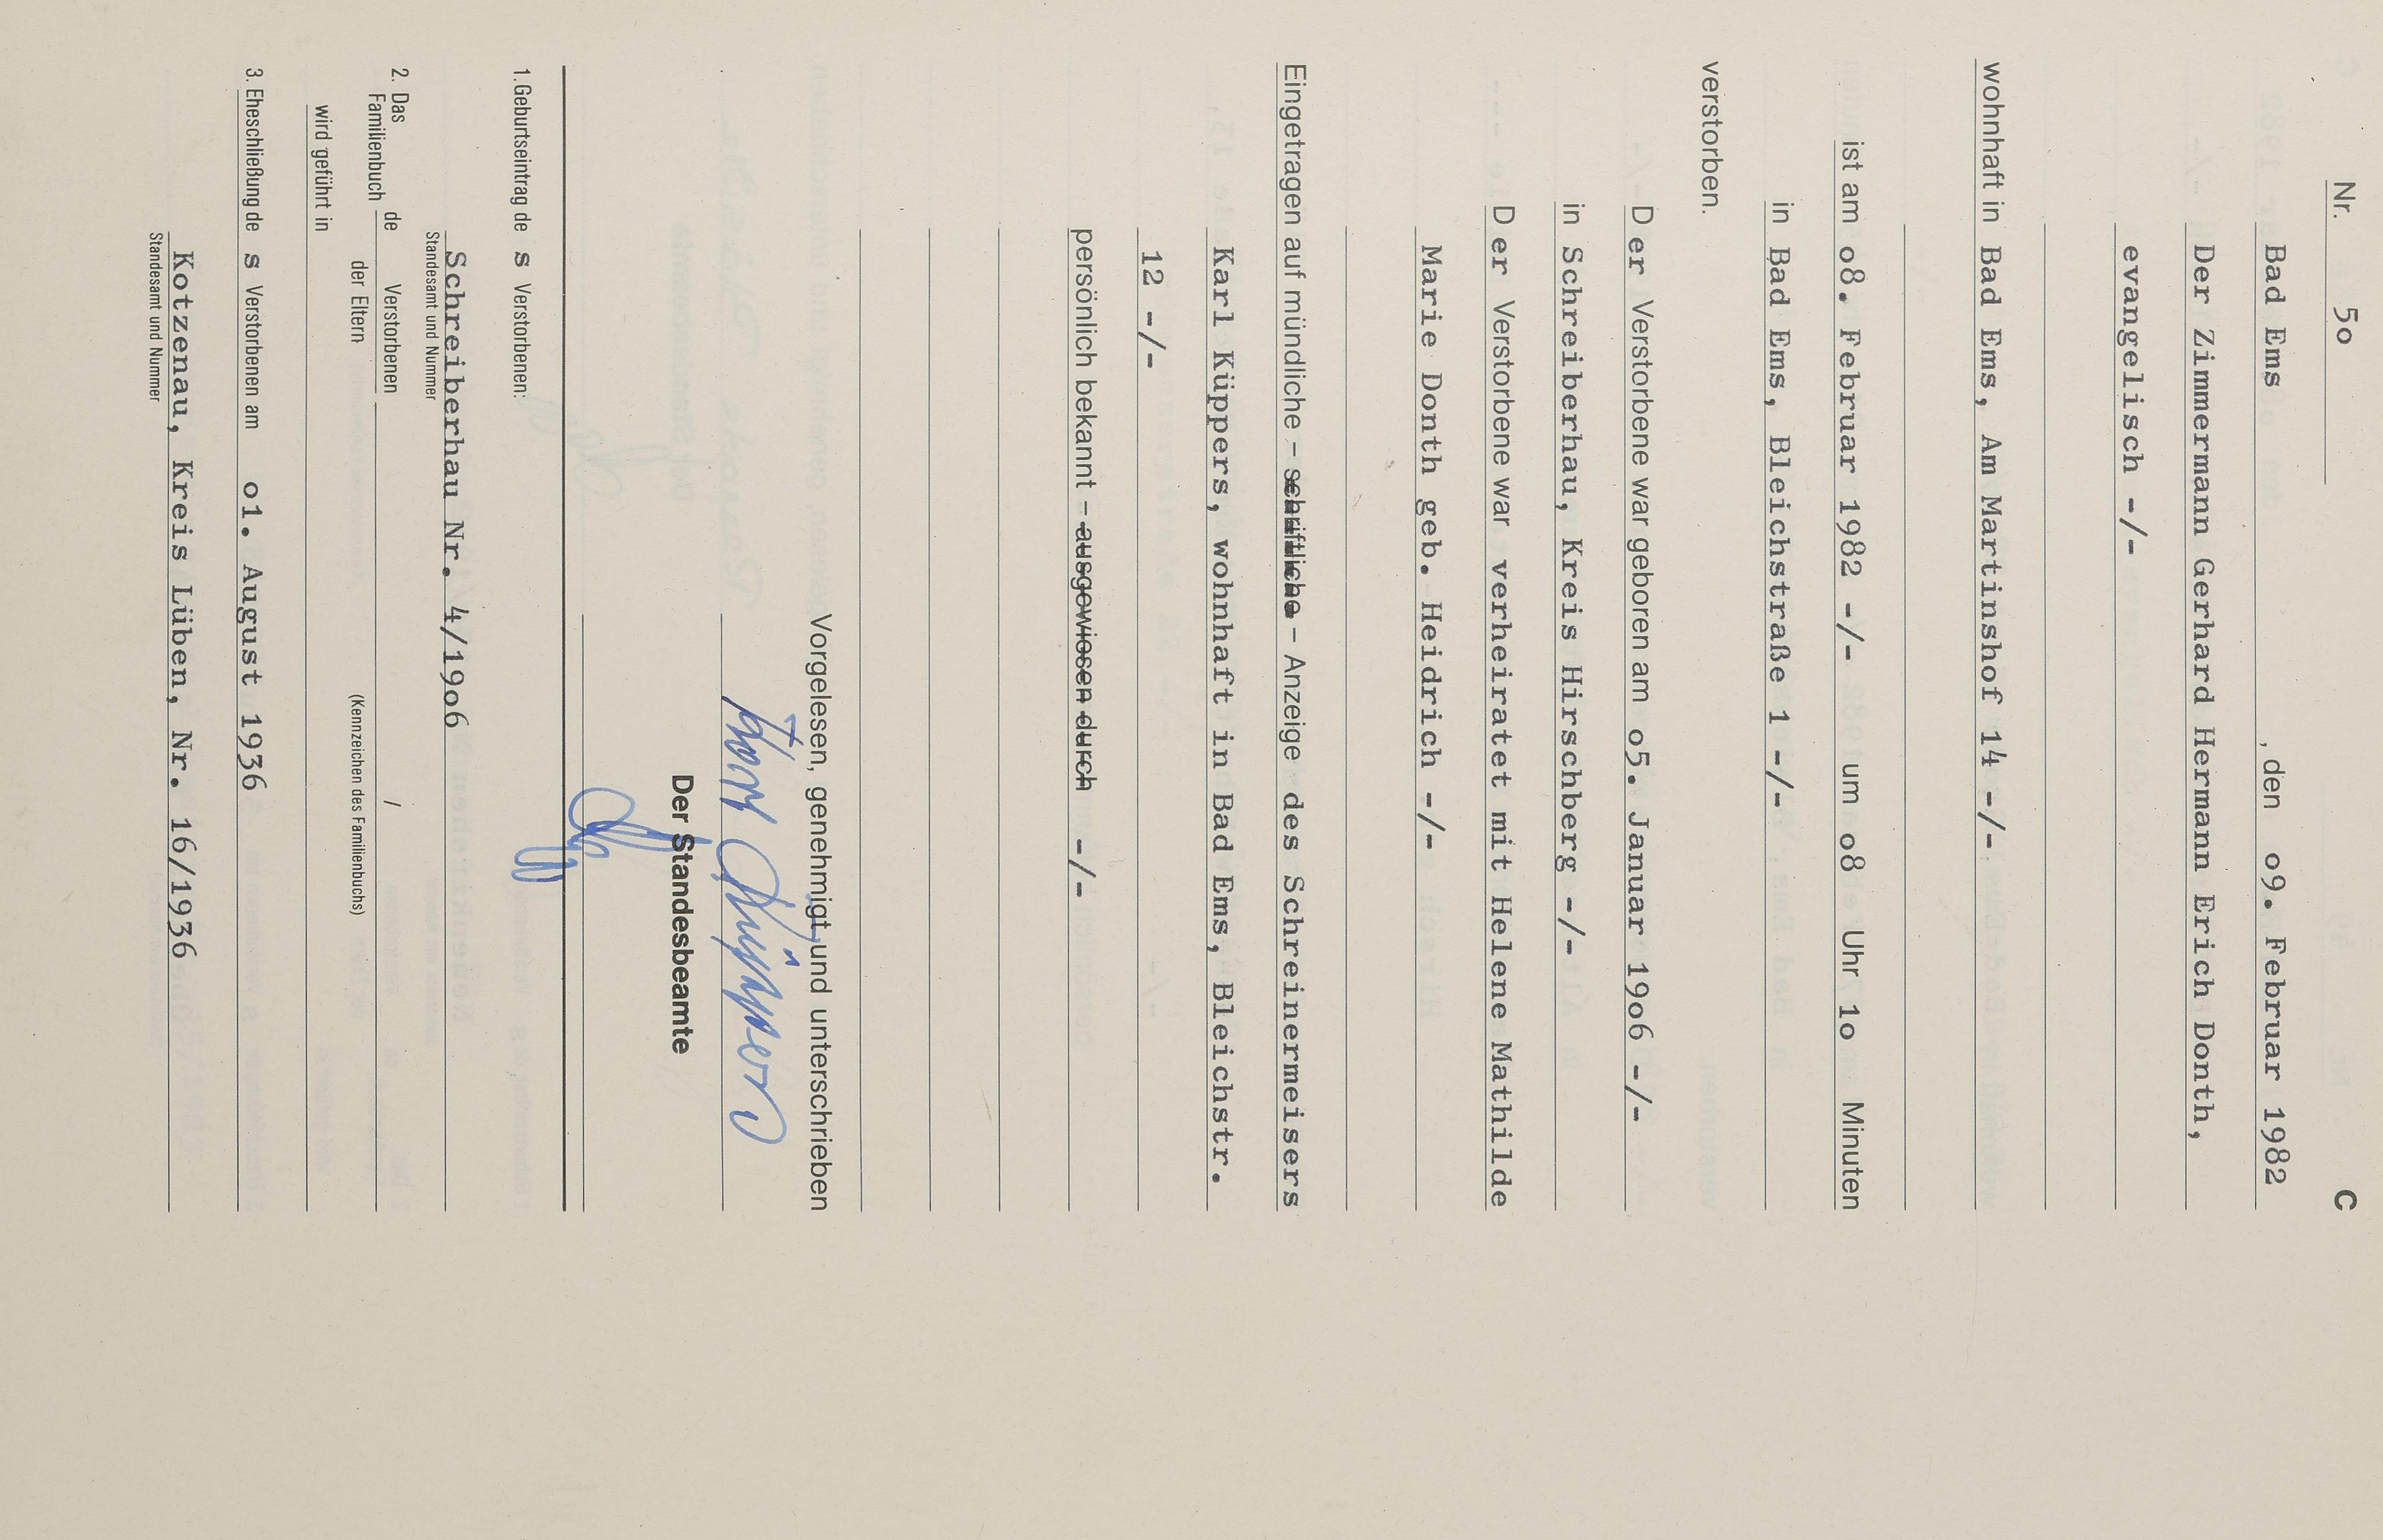 C
Nr. 5o
Bad Ems , den o9. Februar 1982
Der Zimmermann Gerhard Hermann Erich Donth,
evangelisch -/-
wohnhaft in Bad Ems, Am Martinshof 14 -/-
ist am o8. Februar 1982 -/- um o8 Uhr 1o Minuten
in Bad Ems, Bleichstraße 1 -/-
verstorben.
Der Verstorbene war geboren am o5. Januar 19o6 -/-
in Schreiberhau, Kreis Hirschberg -/-
Der Verstorbene war verheiratet mit Helene Mathilde
Marie Donth geb. Heidrich -/-
Eingetragen auf mündliche – schriftliche – Anzeige des Schreinermeisers
Karl Küppers, wohnhaft in Bad Ems, Bleichstr.
12 -/-
persönlich bekannt – ausgewiesen durch -/-
Vorgelesen, genehmigt und unterschrieben
Karl Küppers
Der Standesbeamte
1. Geburtseintrag des Verstorbenen:
Schreiberhau Nr. 4/19o6
Standesamt und Nummer
2. Das Familienbuch de Verstorbenen /
der Eltern (Kennzeichen des Familienbuchs)
wird geführt in
3. Eheschließung des Verstorbenen am o1. August 1936
Kotzenau, Kreis Lüben, Nr. 16/1936
Standesamt und Nummer